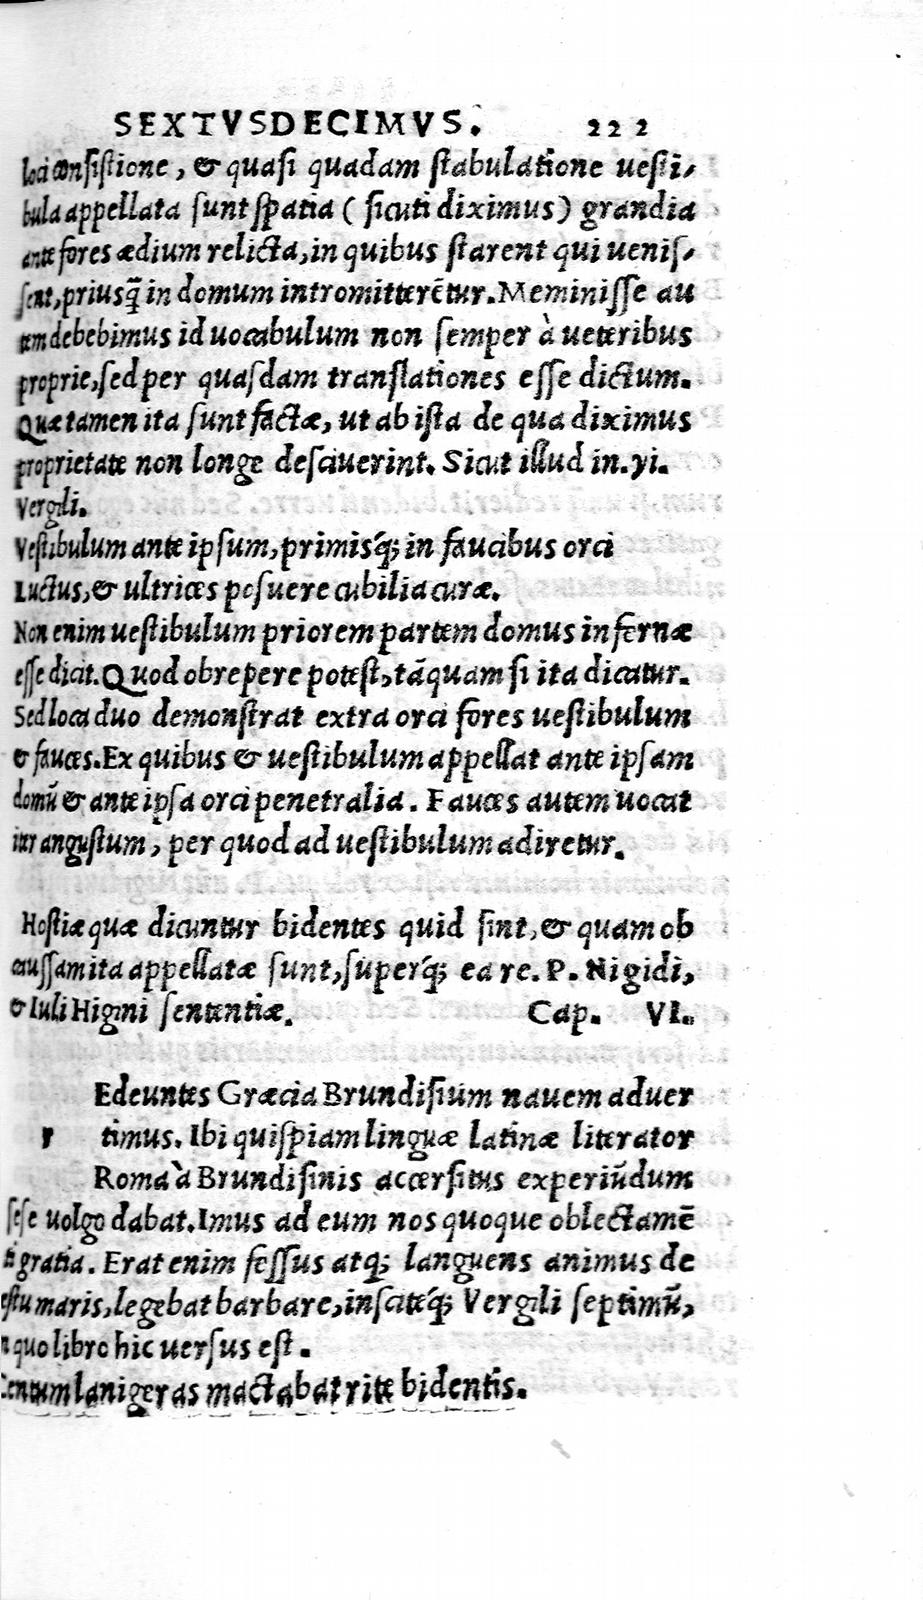 SEXTVSDECIMVS. 222
loci consistione, & quasi quadam stabulatione uesti,
bula appellata sunt spatia ( sicuti diximus) grandia
ante fores ædium relicta, in quibus starent qui uenis,
sent, priusq̃ in domum intromitterẽtur. Meminisse au
tem debebimus id uocabulum non semper à ueteribus
proprie, sed per quasdam translationes esse dictum.
Quæ tamen ita sunt factæ, ut ab ista de qua diximus
proprietate non longe desciuerint. Sicut illud in. yi.
Vergili.
Vestibulum ante ipsum, primisq́; in faucibus orci
Luctus, & ultrices posuere cubilia curæ.
Non enim uestibulum priorem partem domus infernæ
esse dicit. Quod obrepere potest, tãquam si ita dicatur.
Sed loca duo demonstrat extra orci fores uestibulum
& fauces. Ex quibus & uestibulum appellat ante ipsam
domũ & ante ipsa orci penetralia. Fauces autem uocat
iter angustum, per quod ad uestibulum adiretur.
Hostiæ quæ dicuntur bidentes quid sint, & quam ob
caussam ita appellatæ sunt, superq́; ea re. P. Nigidi,
& Iuli Higini sententiæ. Cap. VI.
Edeuntes Græcia Brundisium nauem aduer
r timus. Ibi quispiam linguæ latinæ literator
Roma à Brundisinis accersitus experiũdum
sese uolgo dabat. Imus ad eum nos quoque oblectamẽ
ti gratia. Erat enim fessus atq; languens animus de
estu maris, legebat barbare, insciteq́; Vergili septimũ,
n quo libro hic uersus est.
Centum lanigeras mactabat rite bidentis.